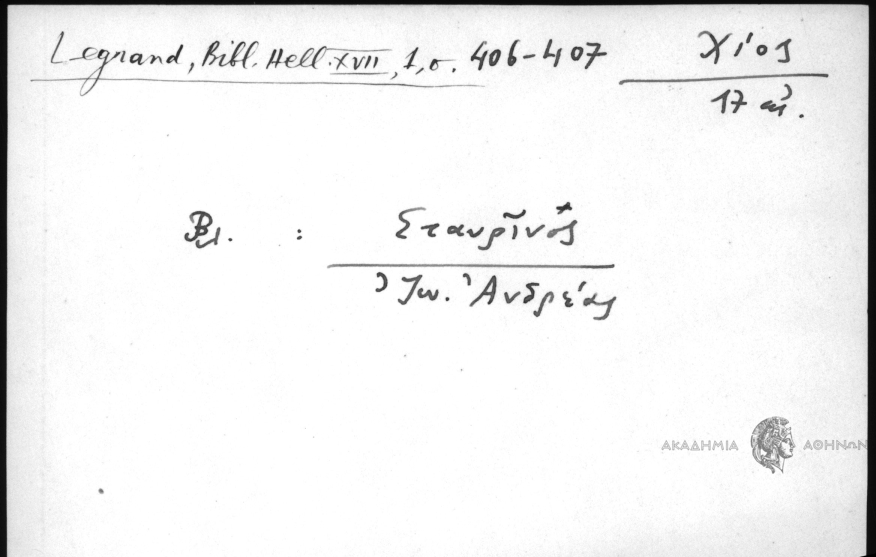 Legrand, Bibl. Hell. XVII, 1, σ. 406-407
Χίος
17 αἰ.
Βλ. : Σταυρῖνος
Ἰω. Ἀνδρέας
ΑΚΑΔΗΜΙΑ ΑΘΗΝΩΝ